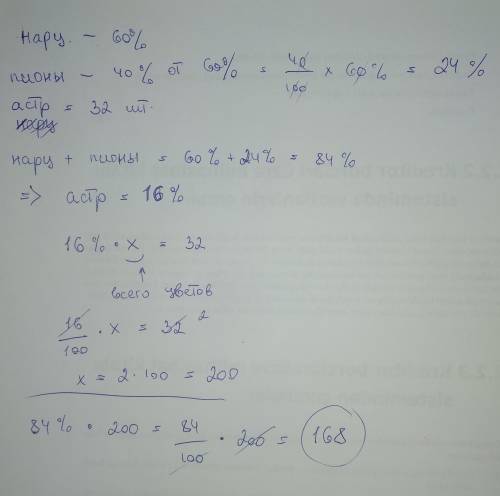 нарц. – 60%
пионы – 40% от 60% = 40/100 × 60% = 24%
астр = 32 шт.
нарц
нарц + пионы = 60% + 24% = 84%
=> астр = 16%
16% · x = 32
↑
всего цветов
16/100 · x = 32 2
x = 2 · 100 = 200
84% · 200 = 84/100 · 200 = 168